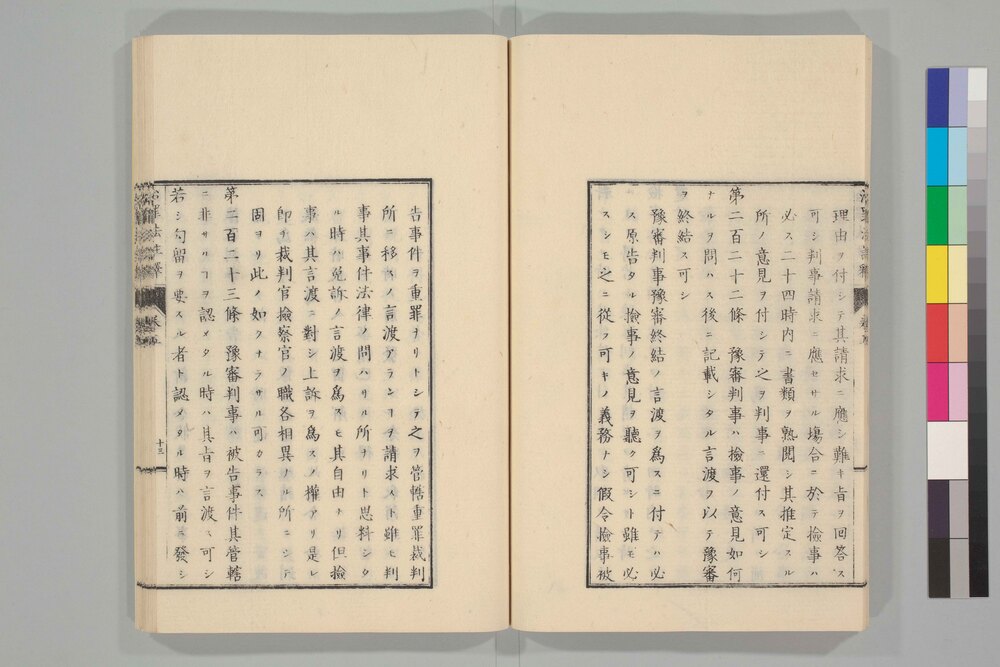 理由ヲ付シテ其請求ニ應シ難キ旨ヲ回答ス
可シ判事請求ニ應セサル塲合ニ於テ撿事ハ
必ス二十四時内ニ書類ヲ熟閲シ其推定スル
所ノ意見ヲ付シテ之ヲ判事ニ還付ス可シ
第二百二十二條 豫審判事ハ撿事ノ意見如何
ナルヲ問ハス後ニ記載シタル言渡ヲ以テ豫審
ヲ終結ス可シ
豫審判事豫審終結ノ言渡ヲ爲スニ付テハ必
ス原告タル撿事ノ意見ヲ聽ク可シト雖モ必
スシモ之ニ從フ可キノ義務ナシ假令撿事被
告事件ヲ重罪ナリトシテ之ヲ管轄重罪裁判
所ニ移スノ言渡アランコヲ請求スト雖モ判
事其事件法律ノ問ハサル所ナリト思料シタ
ル時ハ免訴ノ言渡ヲ爲スモ其自由ナリ但撿
事ハ其言渡ニ對シ上訴ヲ爲スノ權アリ是レ
即チ裁判官撿察官ノ職各相異ナル所ニシテ
固ヨリ此ノ如クナラサル可カラス
第二百二十三條 豫審判事ハ被告事件其管轄
ニ非サルコヲ認メタル時ハ其旨ヲ言渡ス可シ
若シ勾留ヲ要スル者ト認メタル時ハ前ニ發シ
治罪法註釋
十三